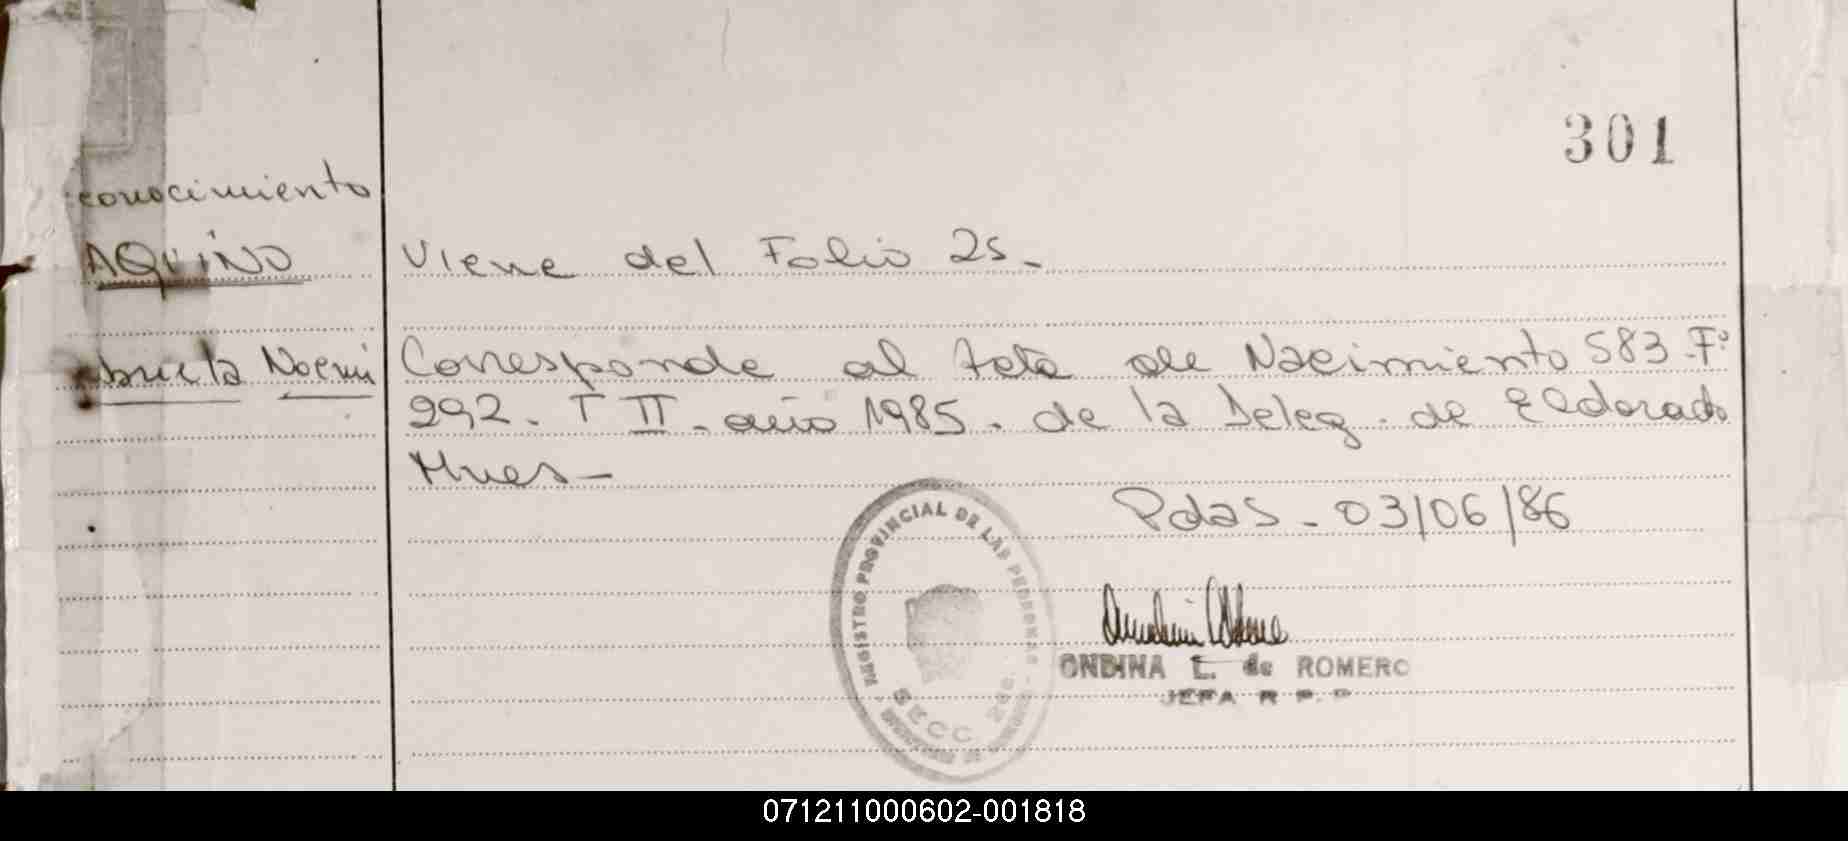 301
conocimiento
AQUINO
Viene del Folio 25.
briela Noemi
Corresponde al Acta de Nacimiento 583. Fº
292. T II. año 1985. de la Deleg. de Eldorado
Mnes-
Pdas. 03/06/86
REGISTRO PROVINCIAL DE LAS PERSONAS
SECC 2da.
ONDINA E. de ROMERO
JEFA R P. P
071211000602-001818